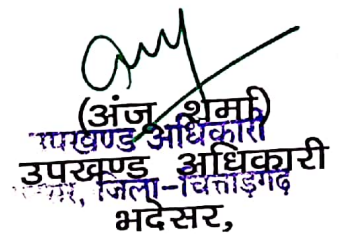 (अंजु शर्मा)
उपखण्ड अधिकारी
उपखण्ड अधिकारी
जिला-चित्तौड़गढ़
भदेसर,